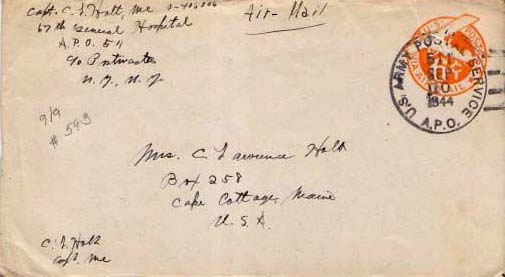 Capt. C. L. Holt, MC O-406806
67th General Hospital
A.P.O. 511
c/o Postmaster
N.Y., N.Y
Air-Mail
U.S. ARMY POSTAL SERVICE
511
SEP
10
1944
A.P.O.
9/9
# 593
Mrs. C. Lawrence Holt
Box 258
Cape Cottage, Maine
U.S.A
C L Holt
Capt. MC